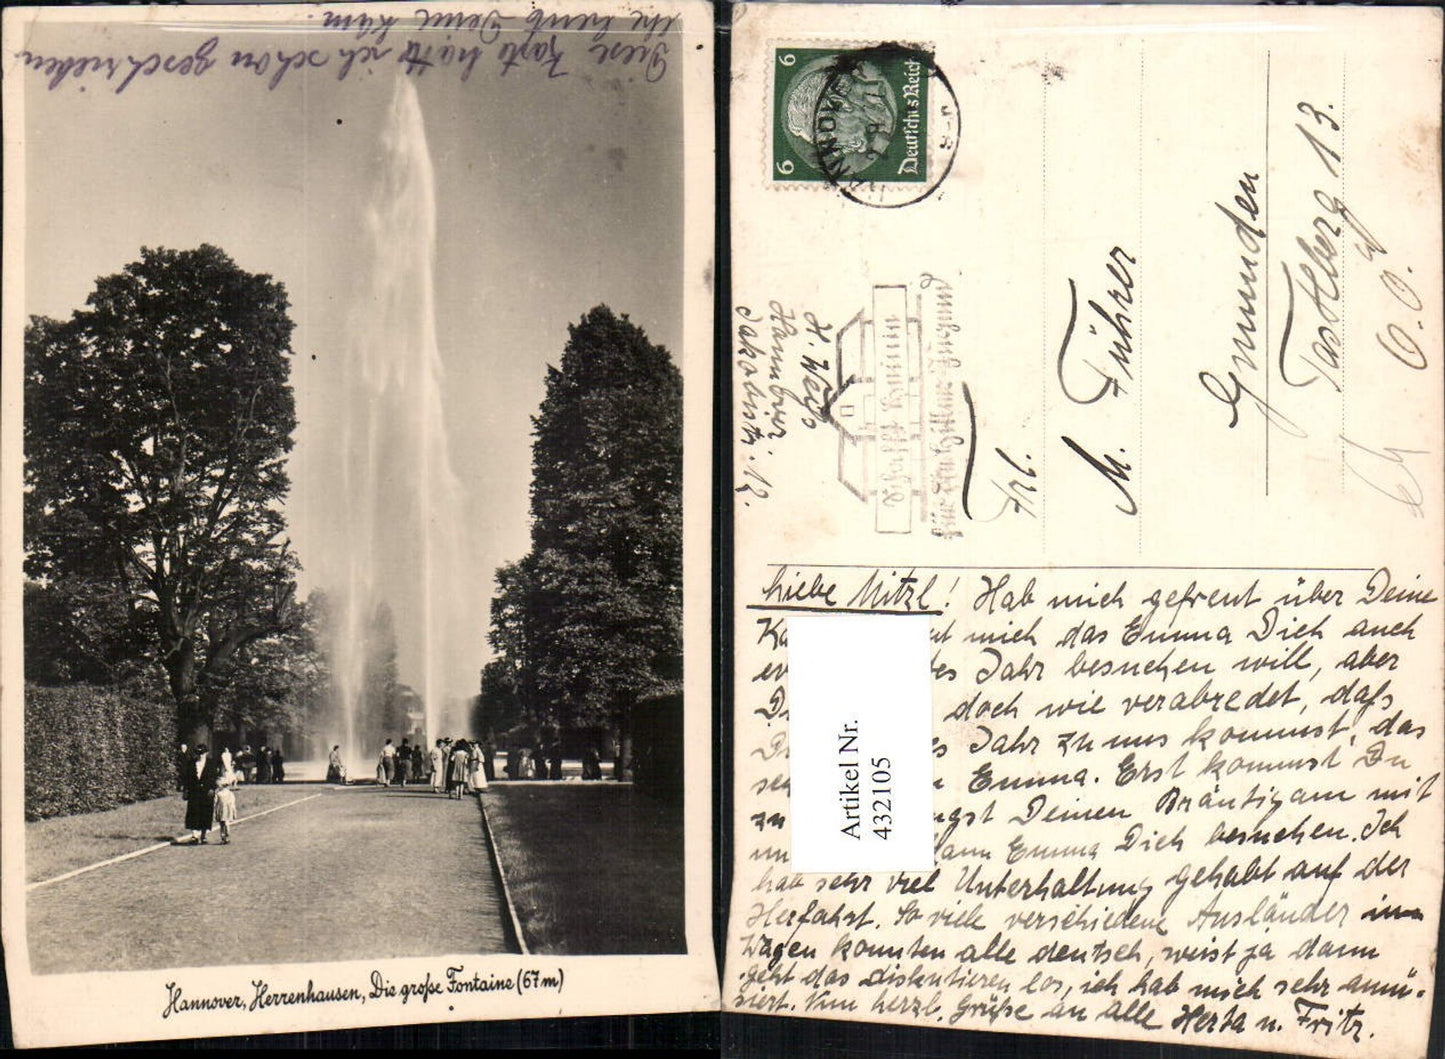 Diese Karte hatte ich schon geschrieben
ehe heute Deine kam.
Hannover, Herrenhausen, Die große Fontaine (67 m)
6
6
Deutsches Reich
HANNOVER
Schafft Heime
für die Hitler-Jugend
Hannover
Jakobistr. 12.
Frl.
M. Führer
Gmunden
13.
O.Ö.
Artikel Nr.
432105
Liebe Mitzl! Hab mich gefreut über Deine
mich das Emma Dich auch
Jahr besuchen will, aber
doch wie verabredet, daſs
Jahr zu uns kommst, das
Emma. Erst kommst Du
zu Deinen Bräutigam mit
Emma Dich besuchen. Ich
hab sehr viel Unterhaltung gehabt auf der
Herfahrt. So viele verschiedene Ausländer im
Wagen konnten alle deutsch, weist ja dann
geht das diskutieren los, ich hab mich sehr amü-
siert. Nun herzl. Grüße an alle Herta u. Fritz.